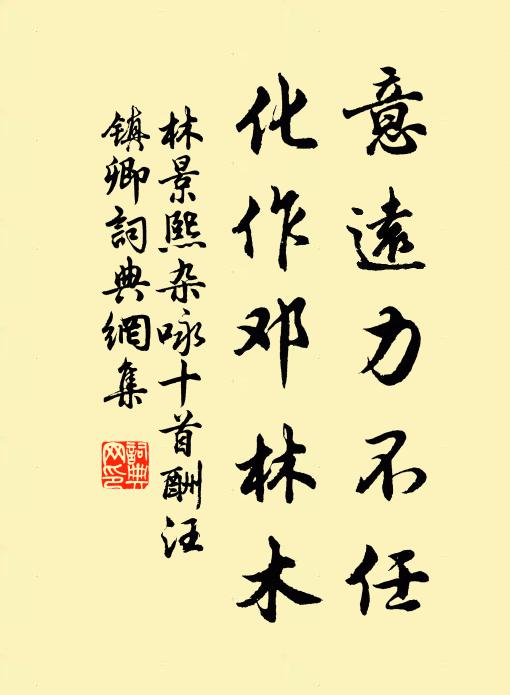 意遠力不任
化作邓林木
林景熙杂咏十首酬汪
镇卿詞典網集
詞典
网印